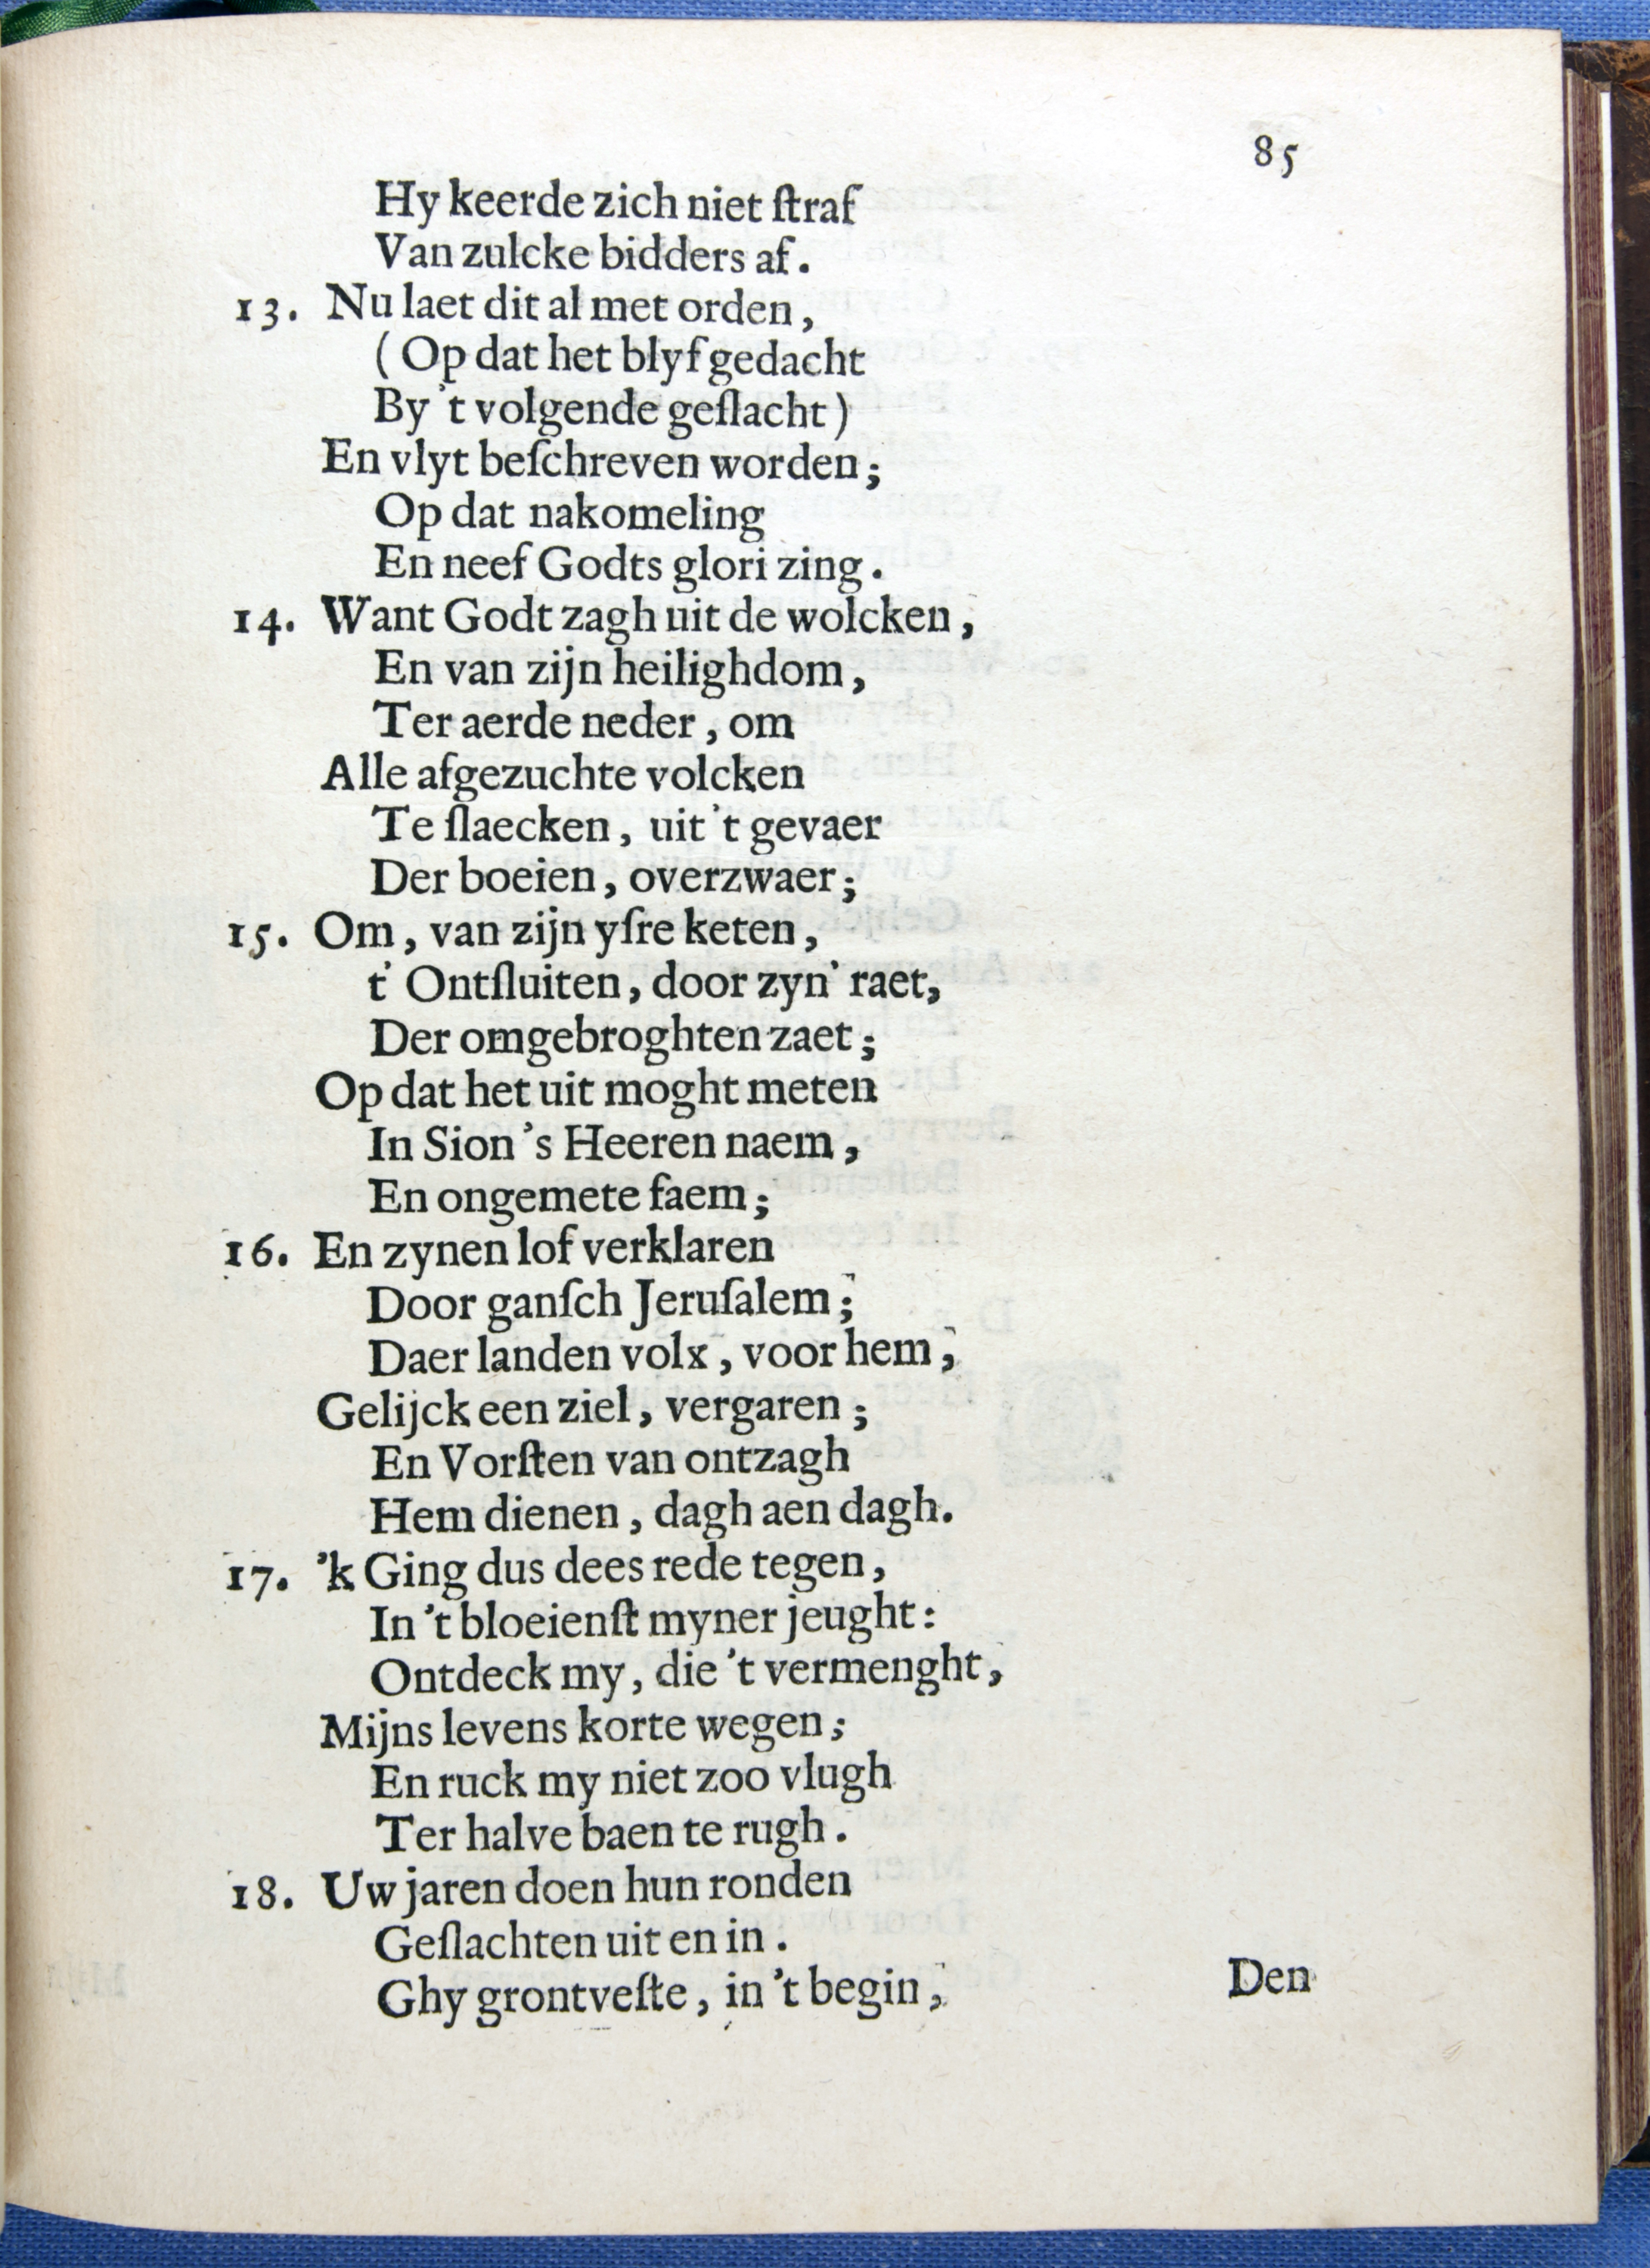 85
Hy keerde zich niet ſtraf
Van zulcke bidders af.
13. Nu laet dit al met orden,
(Op dat het blyf gedacht
By 't volgende geſlacht)
En vlyt beſchreven worden;
Op dat nakomeling
En neef Godts glori zing.
14. Want Godt zagh uit de wolcken,
En van zijn heilighdom,
Ter aerde neder, om
Alle afgezuchte volcken
Te ſlaecken, uit 't gevaer
Der boeien, overzwaer;
15. Om, van zijn yſre keten,
t' Ontſluiten, door zyn' raet,
Der omgebroghten zaet;
Op dat het uit moght meten
In Sion's Heeren naem,
En ongemete faem;
16. En zynen lof verklaren
Door ganſch Jeruſalem;
Daer landen volx, voor hem,
Gelijck een ziel, vergaren;
En Vorſten van ontzagh
Hem dienen, dagh aen dagh.
17. 'k Ging dus dees rede tegen,
In 't bloeienſt myner jeught:
Ontdeck my, die 't vermenght,
Mijns levens korte wegen;
En ruck my niet zoo vlugh
Ter halve baen te rugh.
18. Uw jaren doen hun ronden
Geſlachten uit en in.
Ghy grontveſte, in 't begin,
Den